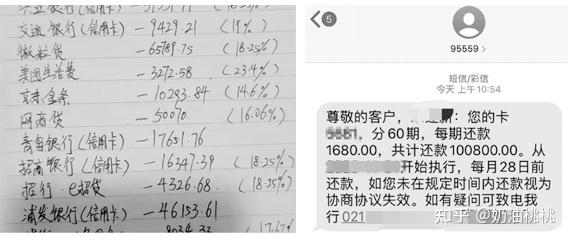 兴业银行(信用卡)
交通银行(信用卡) - 9429.21 (19%)
微粒贷 - 65789.75 (18.25%)
美团生活费 - 3272.58 (23.4%)
京东金条 - 10293.84 (14.6%)
网商贷 - 50070 (16.06%)
青岛银行(信用卡) - 17651.76
招商银行(信用卡) - 16347.39 (18.25%)
招行·e招贷 - 4326.68 (18.25%)
浦发银行(信用卡) - 46153.61
8034.33 (17.67%
5
95559 >
短信/彩信
今天 上午 10:54
尊敬的客户,
您的卡
,分60期,每期还款
1680.00,共计还款100800.00。从
开始执行,每月28日前
还款,如您未在规定时间内还款视为
协商协议失效。如有疑问可致电我
行021
知乎 @奶油桃桃